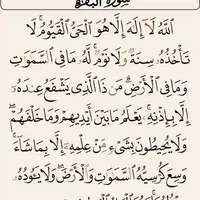 سورة البقرة
ٱللَّهُ لَآ إِلَٰهَ إِلَّا هُوَ ٱلْحَىُّ ٱلْقَيُّومُ ۚ لَا
تَأْخُذُهُۥ سِنَةٌ وَلَا نَوْمٌ ۚ لَّهُۥ مَا فِى ٱلسَّمَٰوَٰتِ
وَمَا فِى ٱلْأَرْضِ ۗ مَن ذَا ٱلَّذِى يَشْفَعُ عِندَهُۥٓ
إِلَّا بِإِذْنِهِۦ ۚ يَعْلَمُ مَا بَيْنَ أَيْدِيهِمْ وَمَا خَلْفَهُمْ ۖ
وَلَا يُحِيطُونَ بِشَىْءٍ مِّنْ عِلْمِهِۦٓ إِلَّا بِمَا شَآءَ ۚ
وَسِعَ كُرْسِيُّهُ ٱلسَّمَٰوَٰتِ وَٱلْأَرْضَ ۖ وَلَا يَـُٔودُهُۥ